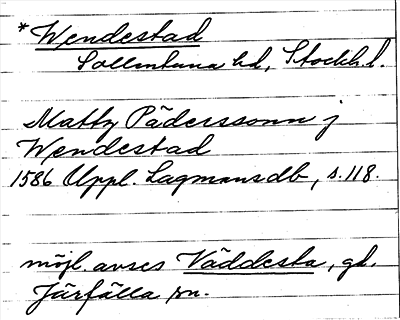 *Wendestad
Sollentuna hd, Stockh.l.
Matty Päderssonn j
Wendestad
1586 Uppl. Lagmansdb, s. 118.
möjl. avses Väddesta, gd,
Järfälla sn.